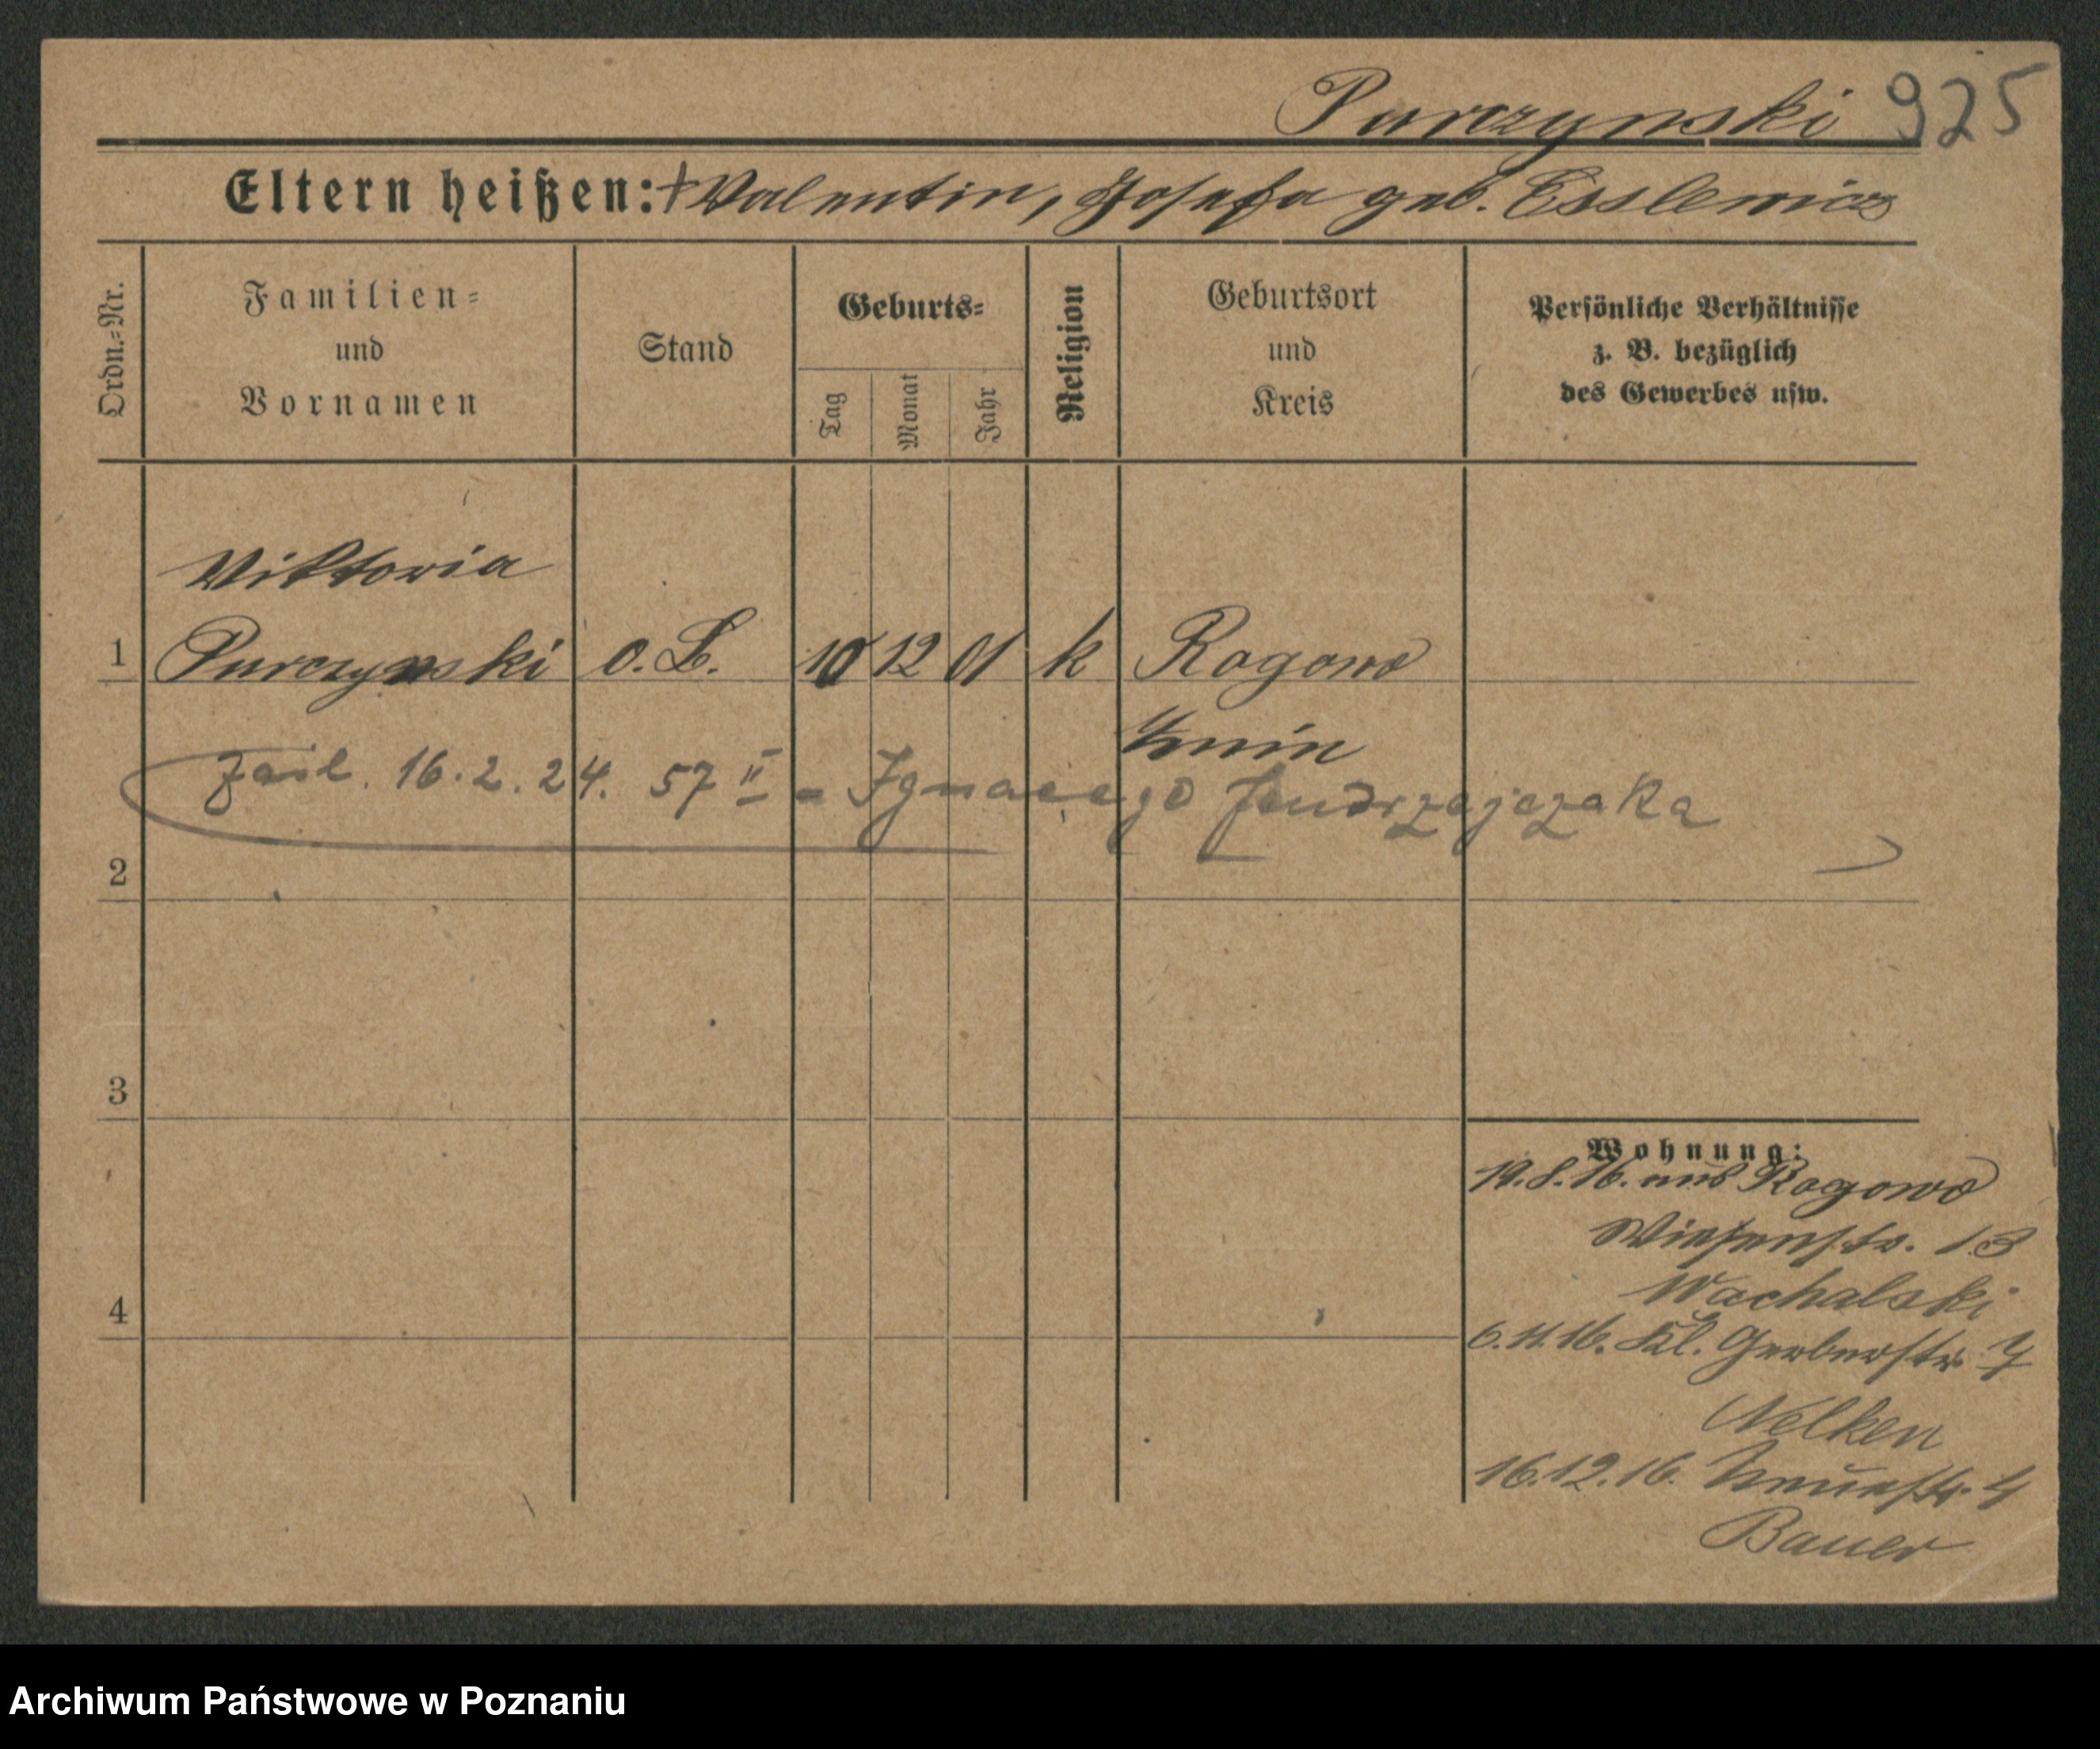 Purczynski 925
Eltern heißen: + Valentin, Josefa geb. Esslewicz
Ordn.-Nr.
Familien-
und
Vornamen
Stand
Geburts-
Tag
Monat
Jahr
Religion
Geburtsort
und
Kreis
Persönliche Verhältnisse
z. B. bezüglich
des Gewerbes usw.
Viktoria
1 Purczynski o. B. 10 12 01 k Rogowo
Znin
zaśl. 16.2.24. 57 II = Ignacego Jendrzejczaka
2
3
4
Wohnung:
19.8.16. aus Rogowo
Wiesenstr. 13
Wachalski
6.11.16. Kl. Gerberstr. 7
Nelken
16.12.16. Neuestr. 4
Bauer
Archiwum Państwowe w Poznaniu